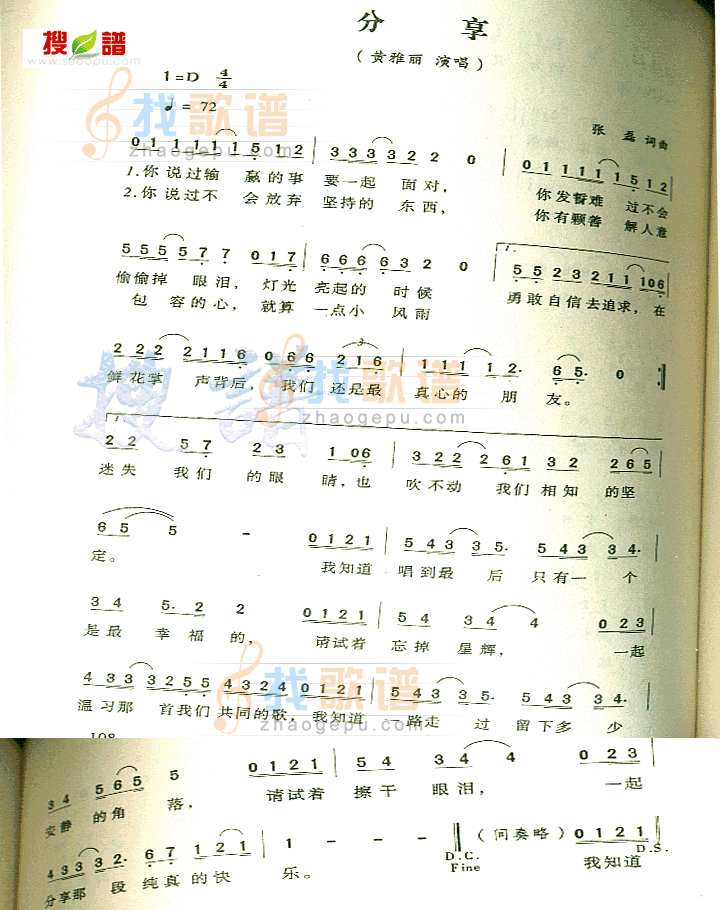 搜 譜
www.sooopu.com
分 享
(黄雅丽 演唱)
1=D 4/4
♩ = 72
找歌谱
zhaogepu.com
张 磊 词曲
0 1 1 1 1 1 1 5 1 2 | 3 3 3 3 3 2 2 0 | 0 1 1 1 1 1 1 5 1 2
1.你说过输 赢的事 要一起 面对, 你发誓难 过不会
2.你说过不 会放弃 坚持的 东西, 你有颗善 解人意
5 5 5 5 7 7 0 1 7 | 6 6 6 6 3 2 0 | 5 5 2 3 2 1 1 1 0 6
偷偷掉 眼泪, 灯光 亮起的 时候 勇敢自信去追求, 在
包 容的心, 就算 一点小 风雨
2 2 2 2 1 1 6 0 6 6 2 1 6 | 1 1 1 1 2· 6 5· 0
鲜花掌 声背后, 我们 还是最 真心的 朋 友。
搜譜
找歌谱
zhaogepu.com
2 2 5 7 2 3 1 0 6 | 3 2 2 2 2 6 1 3 2 2 6 5
迷失 我们 的眼 睛,也 吹不动 我们相知 的坚
6 5 5 - 0 1 2 1 | 5 4 3 3 5· 5 4 3 3 4·
定。 我知道 唱到最 后 只有一 个
3 4 5· 2 2 0 1 2 1 | 5 4 3 4 4 0 2 3
是最 幸 福的, 请试着 忘掉 星辉, 一起
找歌谱
zhaogepu.com
4 3 3 3 2 5 5 4 3 2 4 0 1 2 1 | 5 4 3 3 5· 5 4 3 3 4·
温习那 首我们 共同的歌, 我知道 一路走 过 留下多 少
108
3 4 5 6 5 5 0 1 2 1 | 5 4 3 4 4 0 2 3
安静 的角 落, 请试着 擦干 眼泪, 一起
4 3 3 3 2· 6 7 1 2 1 | 1 - - - (间奏略) 0 1 2 1
分享那 段 纯真的快 乐。 D.C. Fine 我知道 D.S.